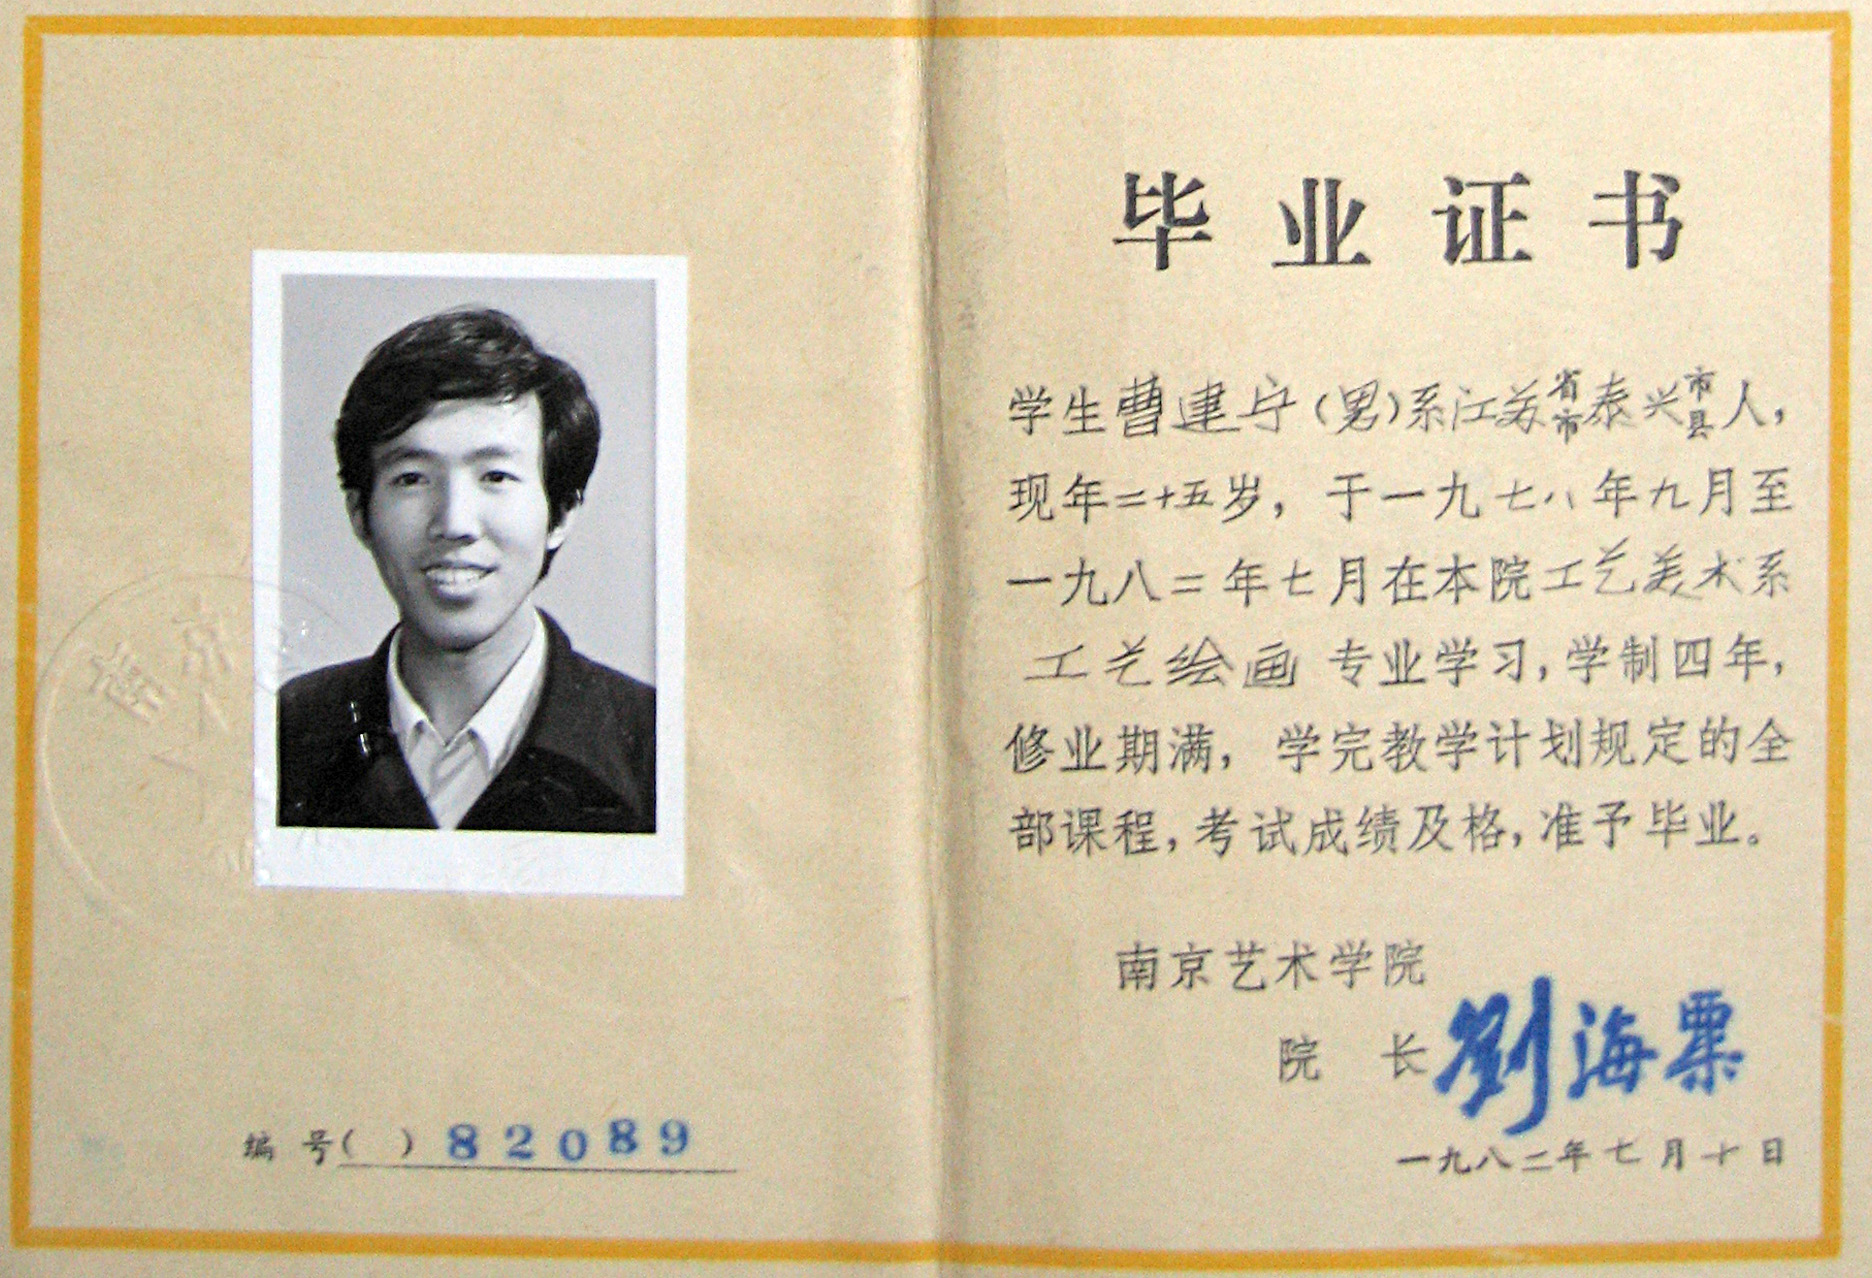 编 号( ) 82089
毕业证书
学生曹建宁(男)系江苏省市泰兴市县人,
现年二十五岁, 于一九七八年九月至
一九八二年七月在本院工艺美术系
工艺绘画专业学习, 学制四年,
修业期满, 学完教学计划规定的全
部课程, 考试成绩及格, 准予毕业。
南京艺术学院
院 长 劉海粟
一九八二年七月十日